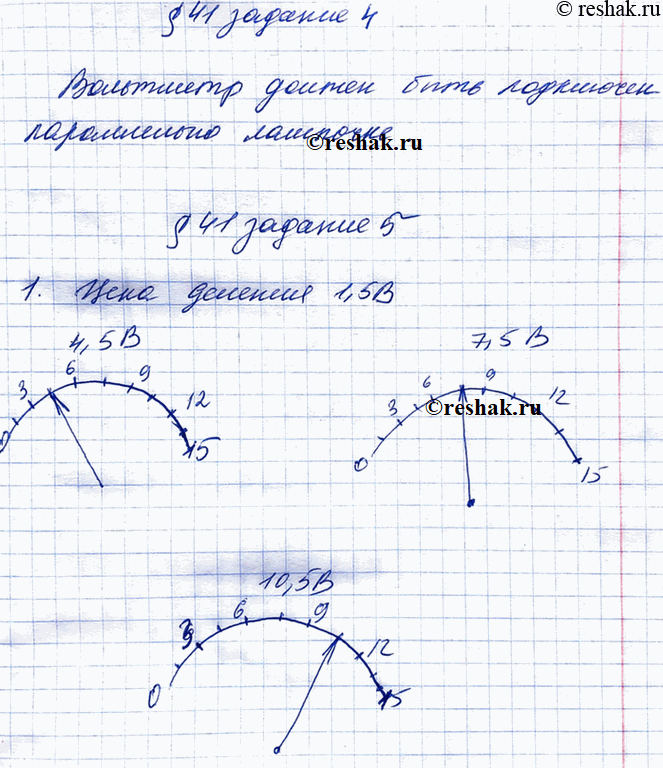 © reshak.ru
§ 41 задание 4
Вольтметр должен быть подключен
параллельно лампочке
©reshak.ru
§ 41 задание 5
1. Цена деления 1,5В
4,5В
7,5В
0 3 6 9 12 15
0 3 6 9 12 15
©reshak.ru
10,5В
0 3 6 9 12 15